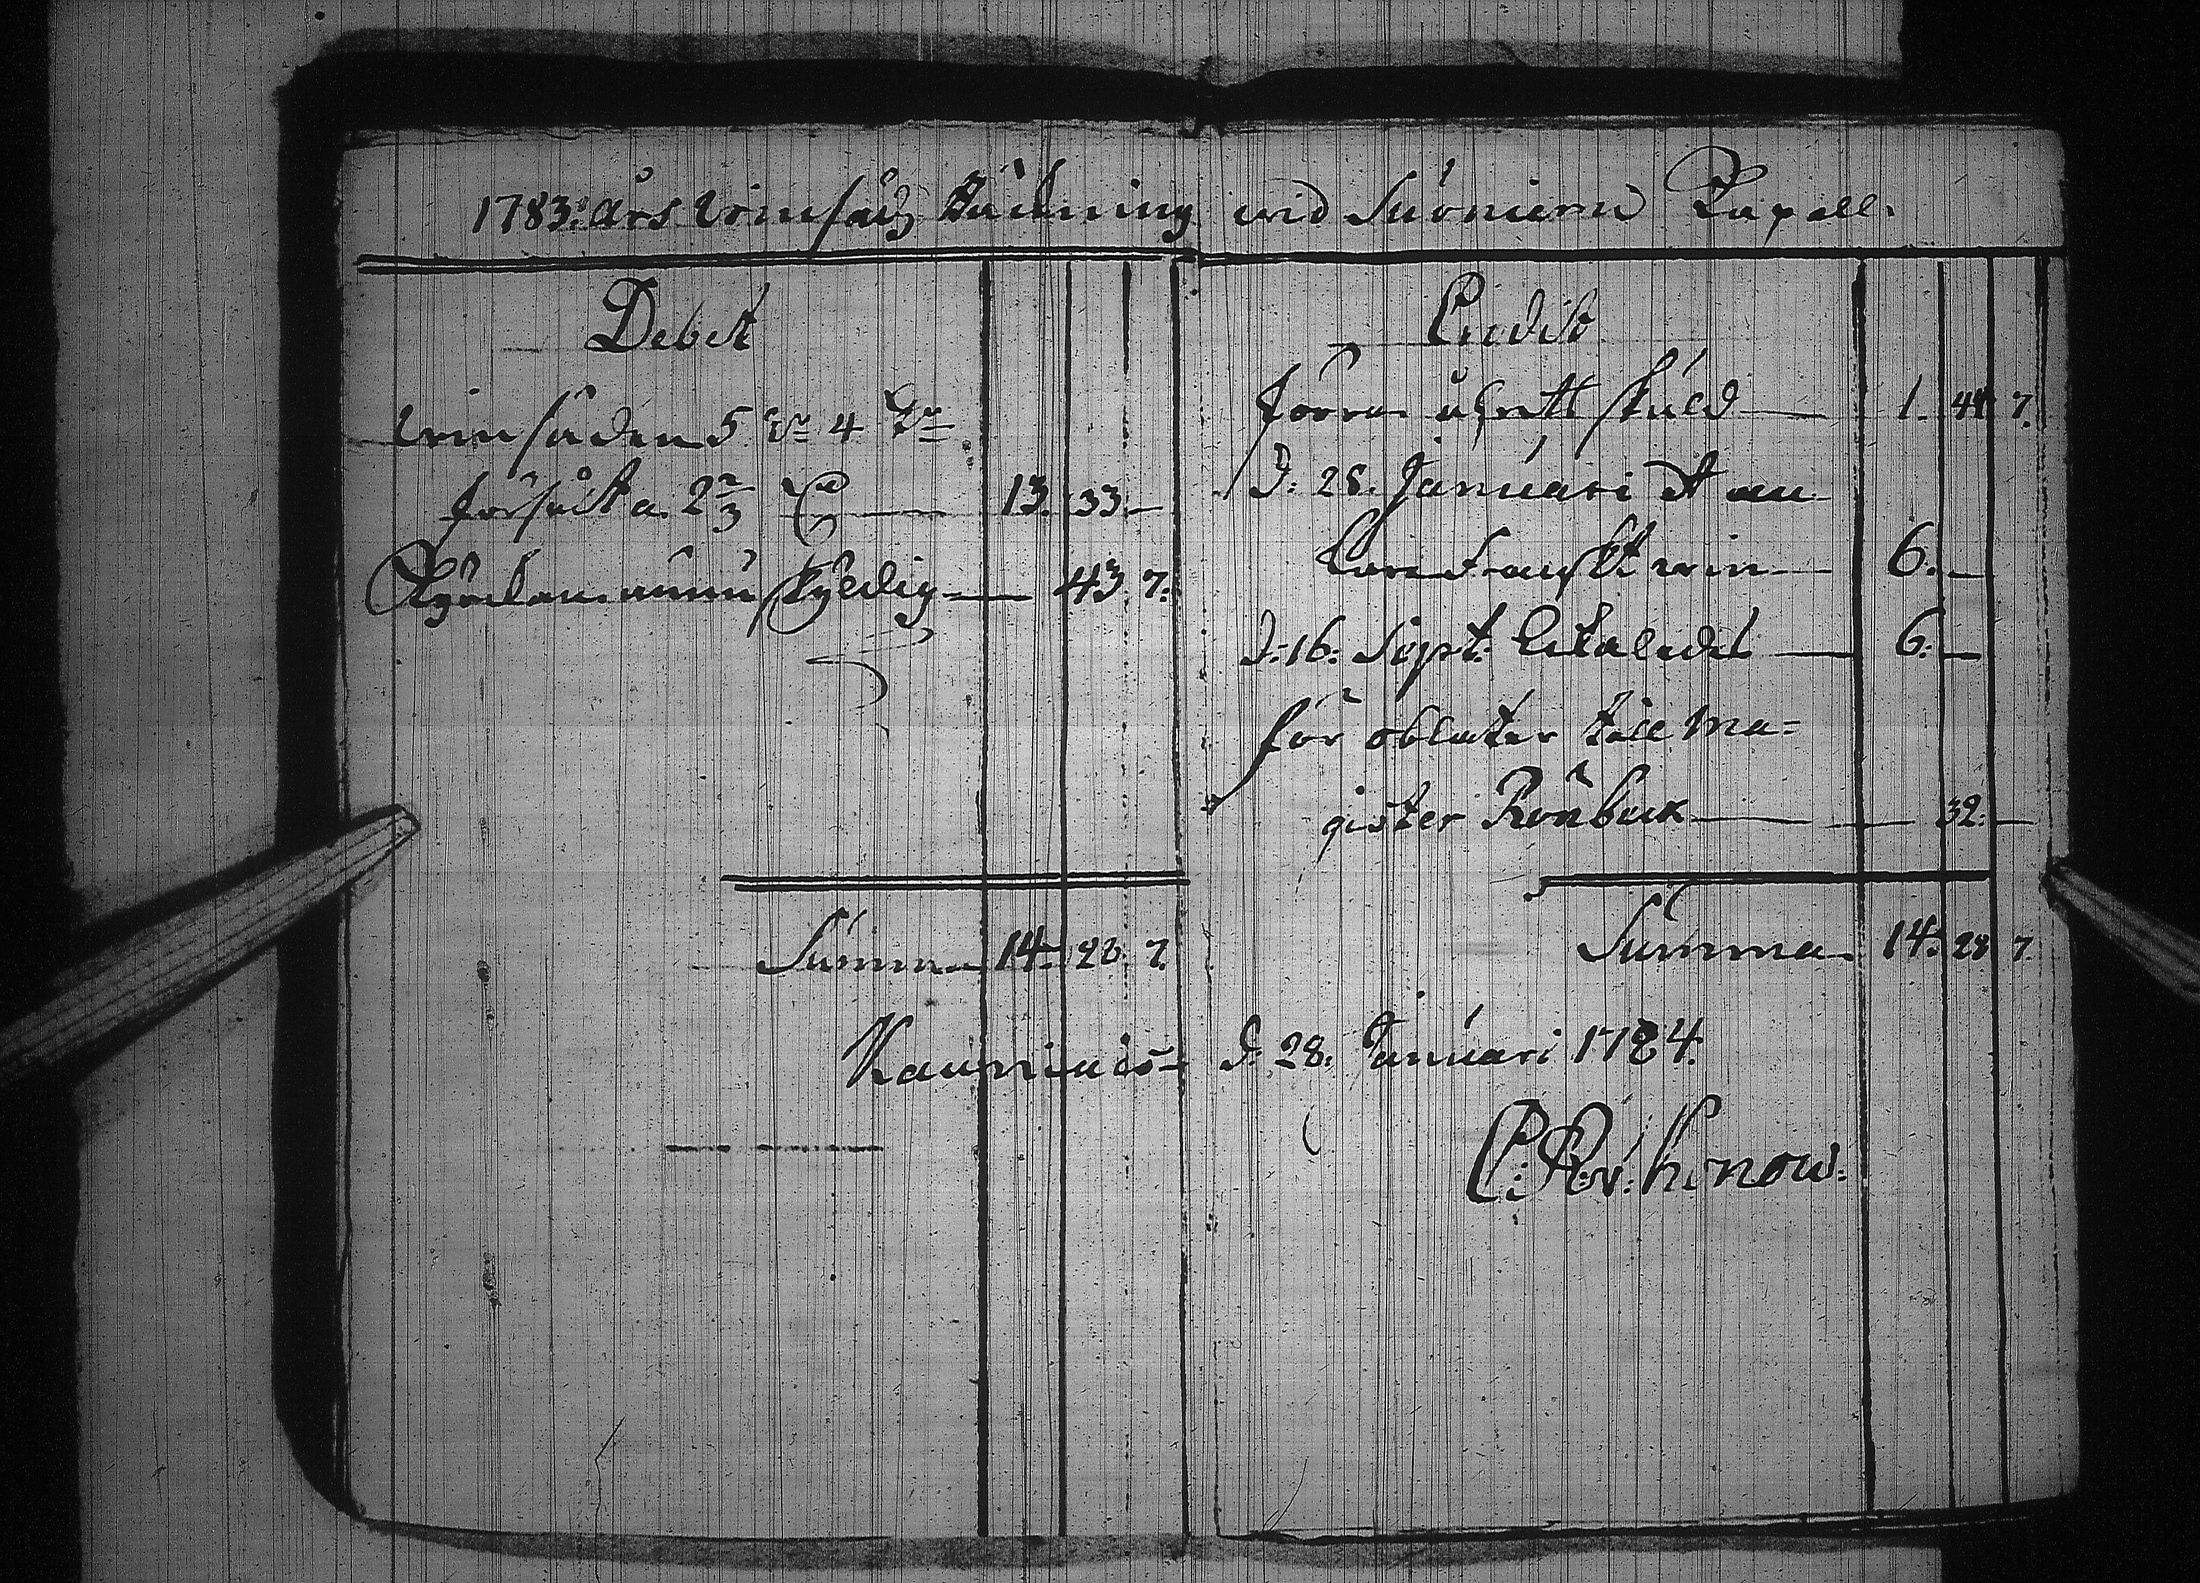 1783: års Vinsäds Räkning wid Suoniemi Capell.
Debet
Vin säden 5 Tr 4 Kr
försålt a 2 2/3 Rd 13. 33. —
Kyrckan skyldig — 43. 7.
Summa 14. 28. 7.
Credit
Förra åhrets skuld — 1. 44. 7.
D: 28. Januari et an-
kare Franskt win — 6. —
D: 16: Sept: betaldes — 6. —
för oblater till Ma-
gister Rönbeck — 32. —
Summa 14. 28. 7.
Kauniais d. 28. Januari 1784.